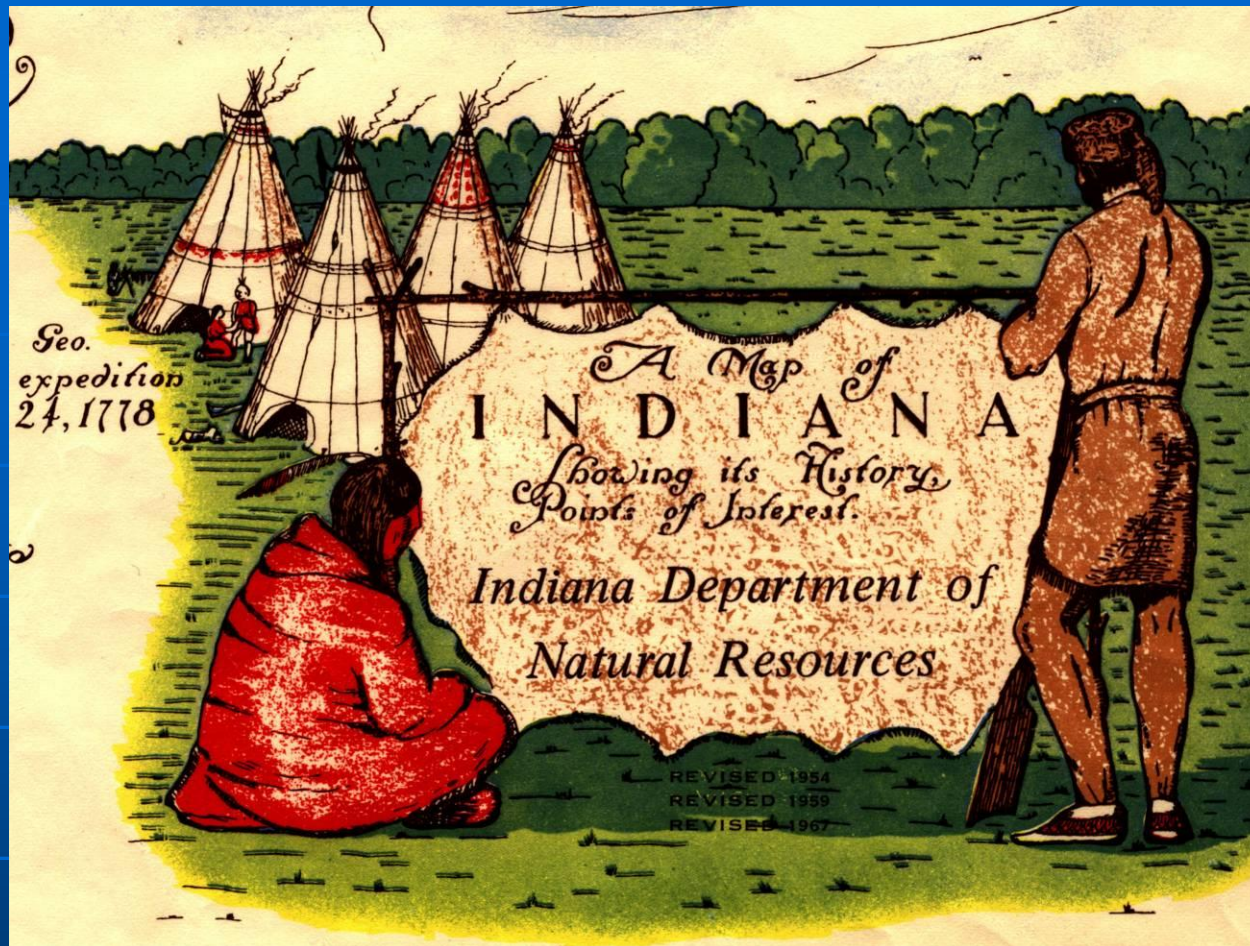 Geo.
expedition
24, 1778
A Map of
INDIANA
Showing its History,
Points of Interest.
Indiana Department of
Natural Resources
REVISED 1954
REVISED 1959
REVISED 1967